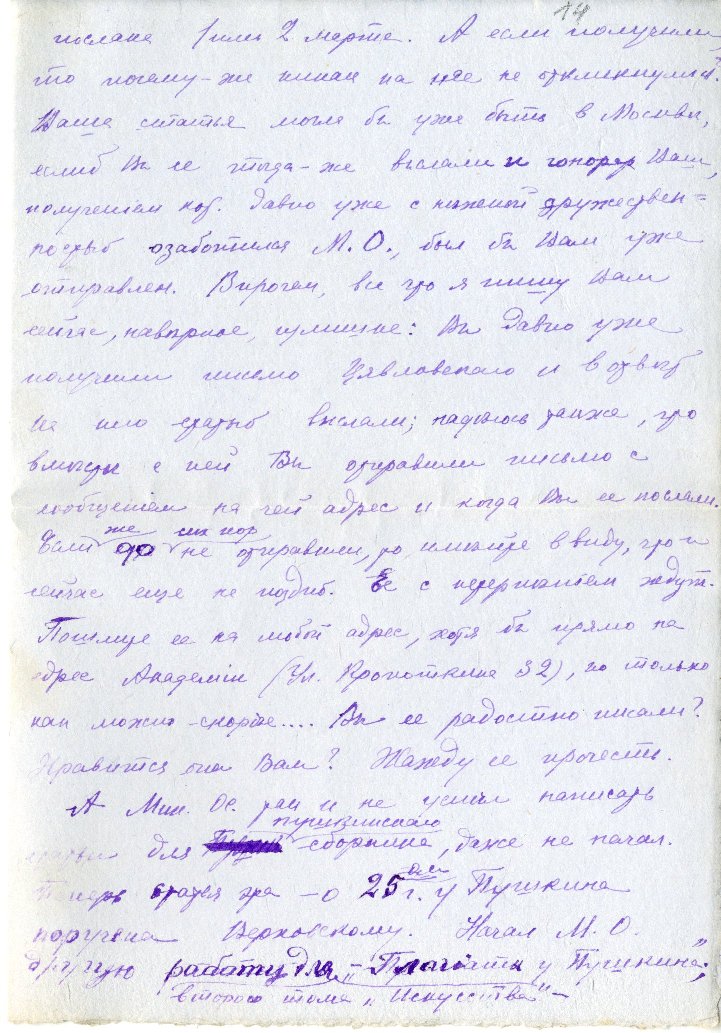 14
послана 1 или 2 марта. А если получили,
то почему-же никак на нее не откликнулись?
Ваша статья могла бы уже быть в Москвы,
еслиб Вы ее тогда-же выслали и гонорар Ваш,
получением кот. давно уже с нѣжной дружествен=
ностью озаботился М. О., был бы Вам уже
отправлен. Впрочем, все что я пишу Вам
сейчас, навѣрное, излишне: Вы давно уже
получили письмо Цявловскаго и в отвѣт
на него статью выслали; надѣюсь также, что
вмѣстѣ с ней Вы отправили письмо с
сообщеніем на чей адрес и когда Вы ее послали.
Если же до сих пор не отправили, то имѣйте в виду, что и
сейчас еще не поздно. Ее с нетерпѣніем ждут.
Пошлите ее на любой адрес, хотя бы прямо на
адрес Академіи (Ул. Кропоткина 32), но только
как можно-скорѣе.... Вы ее радостно писали?
Нравится она Вам? Жажду ее прочесть.
А Мих. Ос. так и не успѣл написать
статьи для пушкинскаго сборника, даже не начал.
Теперь статья эта – о 25 г. у Пушкина
поручена Верховскому. Начал М. О.
другую работу для – „Плагіаты у Пушкина";
второго тома „Искусства" –